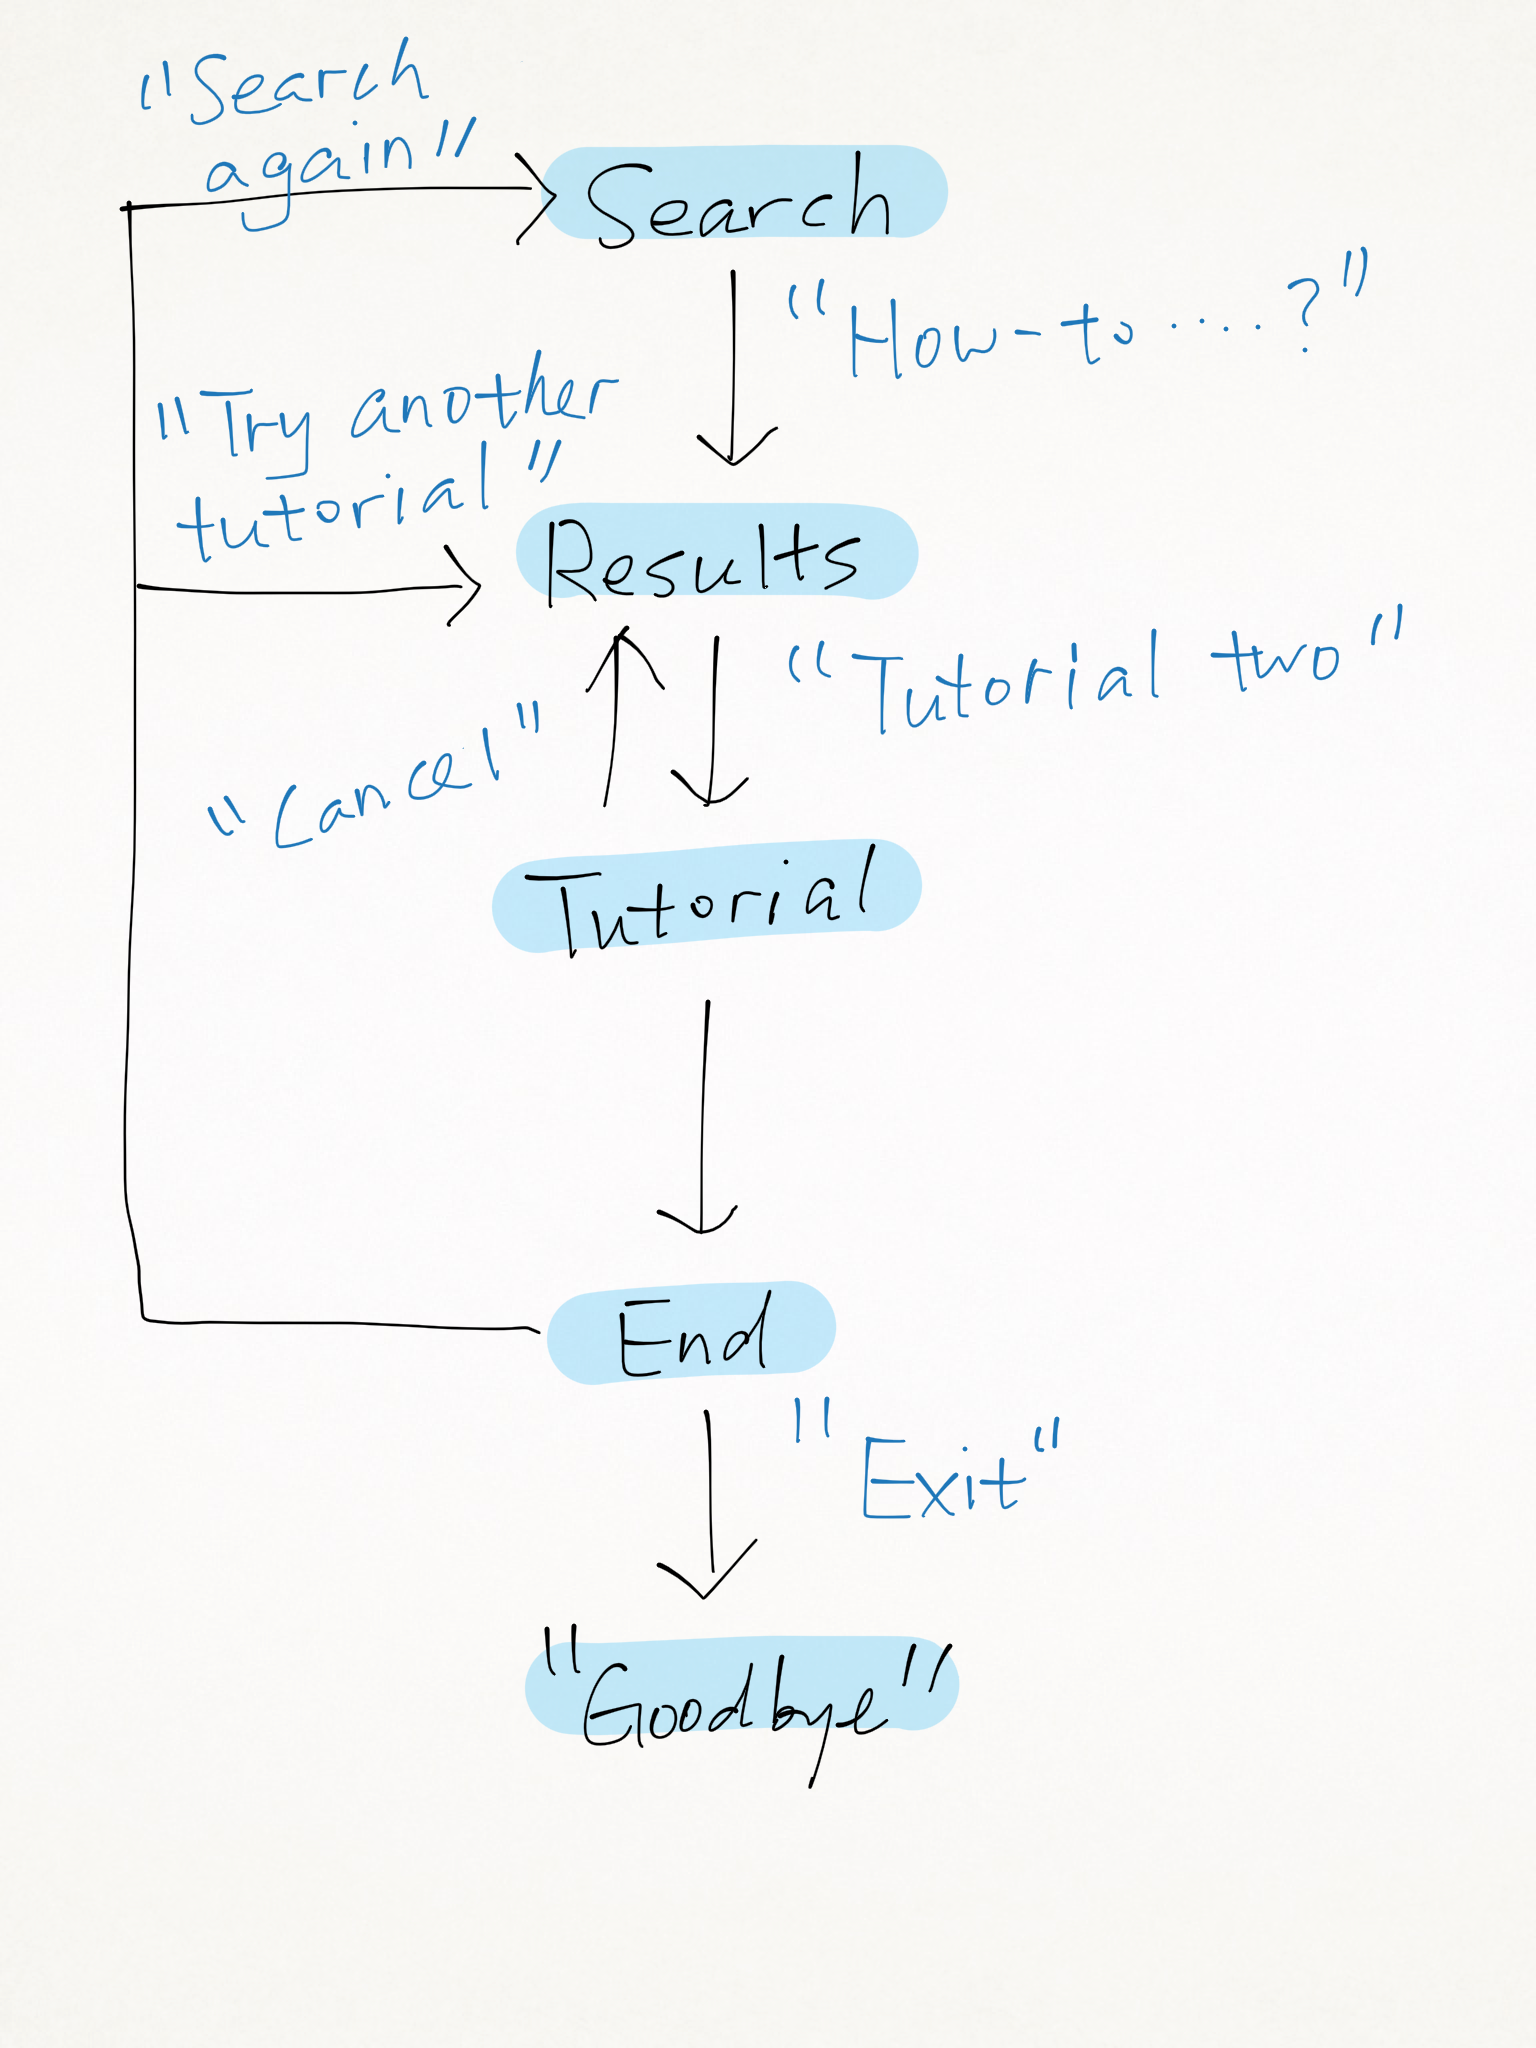 "Search
again"
Search
"How-to ....?"
"Try another
tutorial"
Results
"Tutorial two"
"Cancel"
Tutorial
End
"Exit"
"Goodbye"